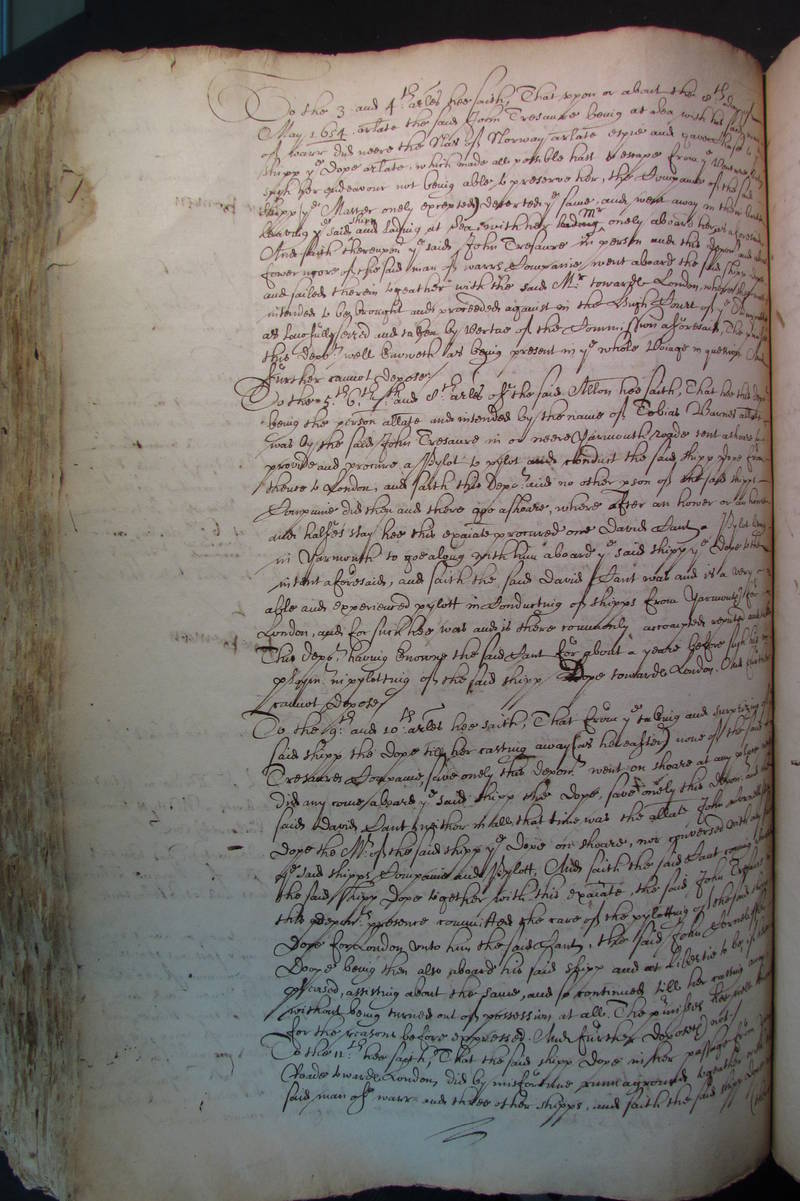 To the 3 and 4th arles hee saith, That upon or about the 8th day of
May 1654 arlate the said John Tresaure being at sea with his said man
of warr did neere the Nas of Norway arlate espie and gave chase to ye
shipp ye Dope arlate, which made all possible hast to escape from ye
such her endeavour not being able to preserve her, the Companie of the said
shipp ye Master onely excepted deserted ye same, and went away in their boate
leaving ye said shipp and lading at sea with her Mr onely aboard her as aforesaid,
And saith thereupon ye said John Tresaure in person and this depont and about
fower more of the said man of warrs Companie, went aboard the said shipp Dope
and sailed therein togeather with the said Mr towards London, where shee was
intended to be brought and proceeded against in the High Court of ye Admiralty
as lawfully seized and taken by vertue of the Commission aforesaid, The premisses
this depot well knoweth as being present in ye whole Voiage in question And
further cannot depose./
To the 5th 6th 7th and 8th arles of the said Allon hee saith, That hee this depot
being the person allate and intended by the name of Tobias Barnes allate
was by the said John Tresaure in or neere Yarmouth roade sent ashoare to
provide and procure a Pylot to pylot and conduct the said shipp Dope from
thence to London, and saith this Depot and no other pson of the said shipps
Companie did then and there goe ashoare, where after an hower or an hower
and halfes stay hee this exaiate procured one David Sant a Pylot living
in Yarmouth to goe along with him aboard ye said shipp ye Dope to the
intent aforesaid, and saith the said David Sant was and is a very
able and experienced pylott in Conducting of shipps from Yarmouth for
London, and for such hee was and is there commonly accompted reputed and
This depot having knowne the said Sant for about a yeare before such his
in pylotting of the said shipp Dope towards London. And further
cannot depose./
To the 9th and 10th arles hee saith, That from ye taking and surprizing of ye
said shipp the Dope till her casting away (as hereafter) none of the said
Tresaures Companie, save onely this depont went on shoare at any place nor
did any come aboard ye said shipp the Dope, save onely this depont and ye
said David Sant, neither in all that time was the allate John
Dope the Mr of the said shipp ye Dope on shoare, nor conversed with any
of ye said shipps Companie and Pylott, And saith the said Sant coming aboard
the said shipp Dope together with this exaiate, the said John Tresaure in
this deponts presence committed the care of the pylotting of the said shipp
Dope for London unto him the said Sant, the said John
Doope being then also aboard his said shipp and at libertie to be
pleased, assisting about the same, and so continued till her casting away
without being turned out of possession at all. The premisses hee well knoweth
for the reasons before expressed. And further deposeth not./
To the 11th hee saith, That the said shipp Dope in her passage from
Roade towards London, did by misfortune runn aground togeather with the
said man of warr and three other shipps, and saith the said shipp Dope